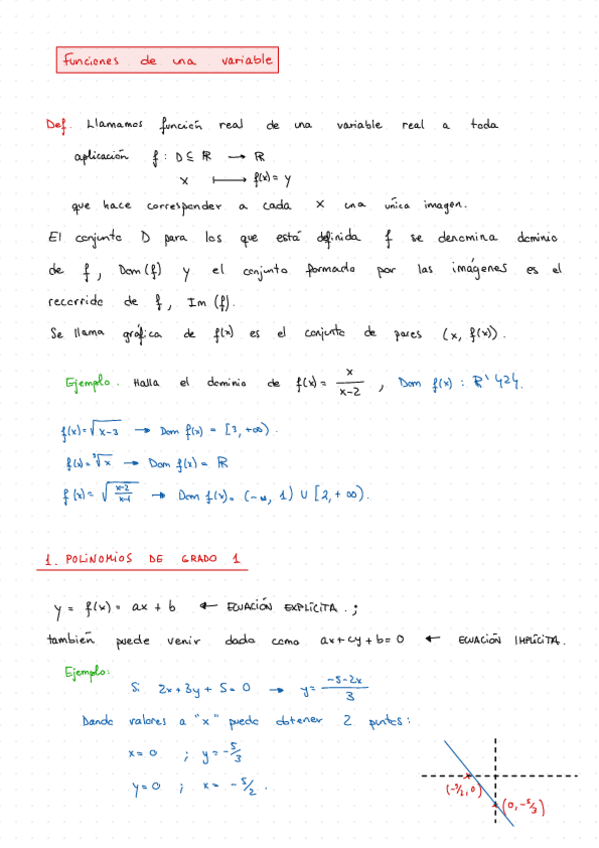 Funciones de una variable
Def. Llamamos función real de una variable real a toda
aplicación f : D ⊆ ℝ → ℝ
x ⟼ f(x) = y
que hace corresponder a cada x una única imagen.
El conjunto D para los que está definida f se denomina dominio
de f, Dom(f) y el conjunto formado por las imágenes es el
recorrido de f, Im(f).
Se llama gráfica de f(x) es el conjunto de pares (x, f(x)).
Ejemplo. Halla el dominio de f(x) = x/(x-2), Dom f(x) : ℝ\{2}.
f(x) = √(x-3) → Dom f(x) = [3, +∞).
f(x) = ³√x → Dom f(x) = ℝ
f(x) = √((x-2)/(x-1)) → Dom f(x) = (-∞, 1) ∪ [2, +∞).
1. POLINOMIOS DE GRADO 1
y = f(x) = ax + b ← ECUACIÓN EXPLÍCITA. ;
también puede venir dada como ax + cy + b = 0 ← ECUACIÓN IMPLÍCITA.
Ejemplo:
Si 2x + 3y + 5 = 0 → y = (-5-2x)/3
Dando valores a "x" puedo obtener 2 puntos:
x = 0 ; y = -5/3
y = 0 ; x = -5/2.
(-5/2, 0)
(0, -5/3)